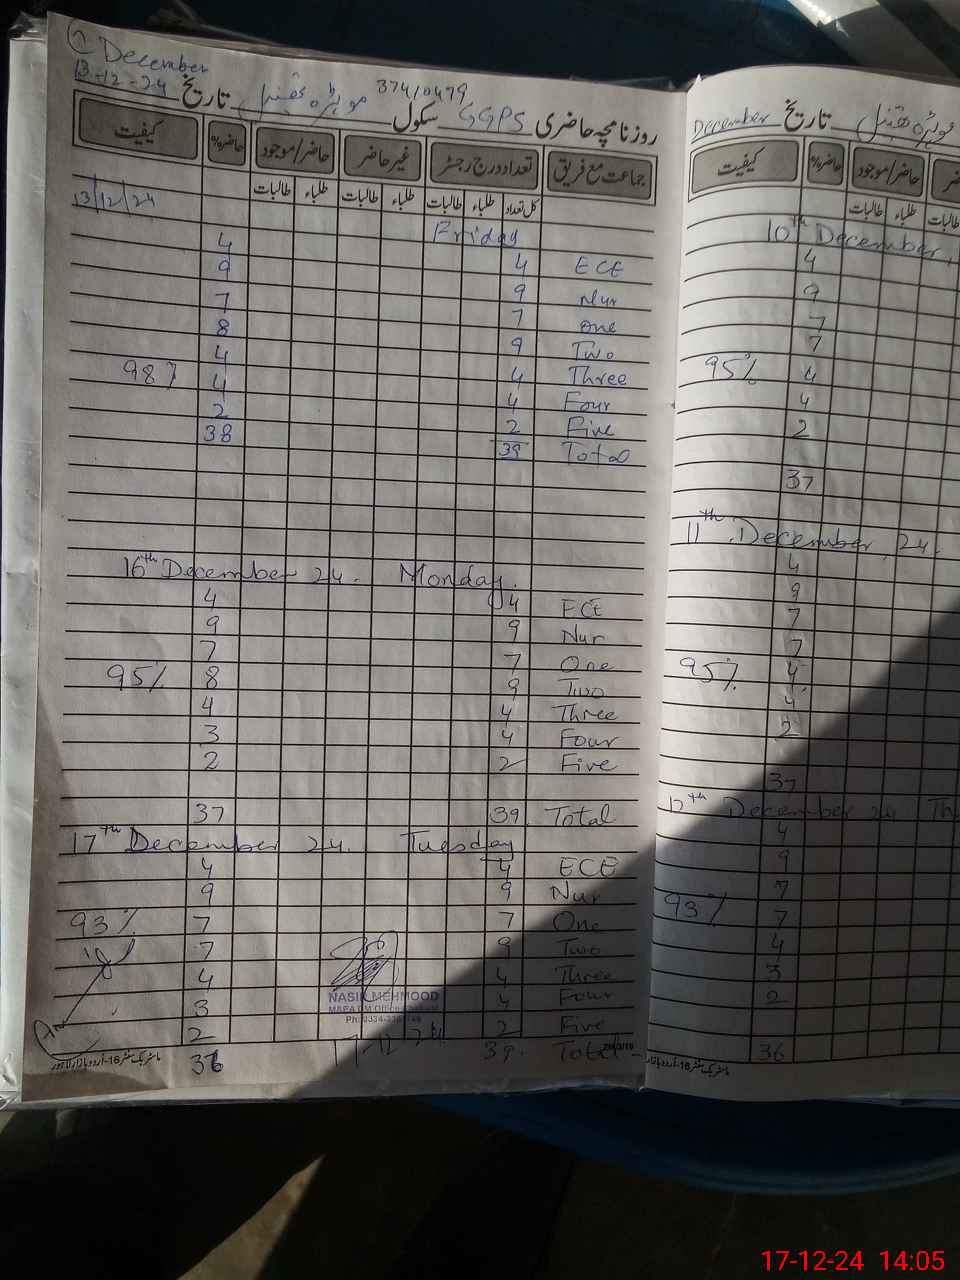 December
13-12-24 تاریخ موہڑہ 37410479
روزنامچہ حاضری GGPS سکول
جماعت مع فریق تعداد درج رجسٹر غیر حاضر حاضر/موجود حاضر% کیفیت
کل تعداد طلباء طالبات طلباء طالبات طلباء طالبات
13/12/24
Friday
4 4 ECE
9 9 Nur
7 7 One
8 9 Two
4 4 Three
98% 4 4 Four
2 2 Five
38 39 Total
16th December 24. Monday.
4 4 ECE
9 9 Nur
7 7 One
95% 8 9 Two
4 4 Three
3 4 Four
2 2 Five
37 39. Total
17th December 24. Tuesday
4 4 ECE
9 9 Nur
93% 7 7 One
7 9 Two
4 4 Three
3 4 Four
2 2 Five
36 39. Total
NASIR MEHMOOD
ماسٹر بک سنٹر 16-اردو بازار لاہور
December تاریخ موہڑہ
کیفیت حاضر% حاضر/موجود
طلباء طالبات
طالبات
10th December,
4
9
7
7
95% 4
4
2
37
11th December, 24.
4
9
7
7
95% 4
4
2
37
12th December 24 Th
4
9
7
93% 7
4
3
2
36
ماسٹر بک سنٹر 16-اردو بازار لاہور
17-12-24 14:05